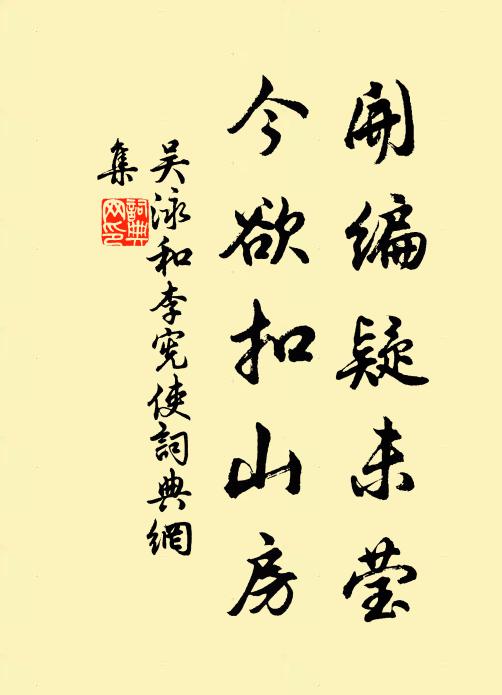 開編疑未瑩
今欲扣山房
吴泳和李宪使詞典網
集
詞典
网印